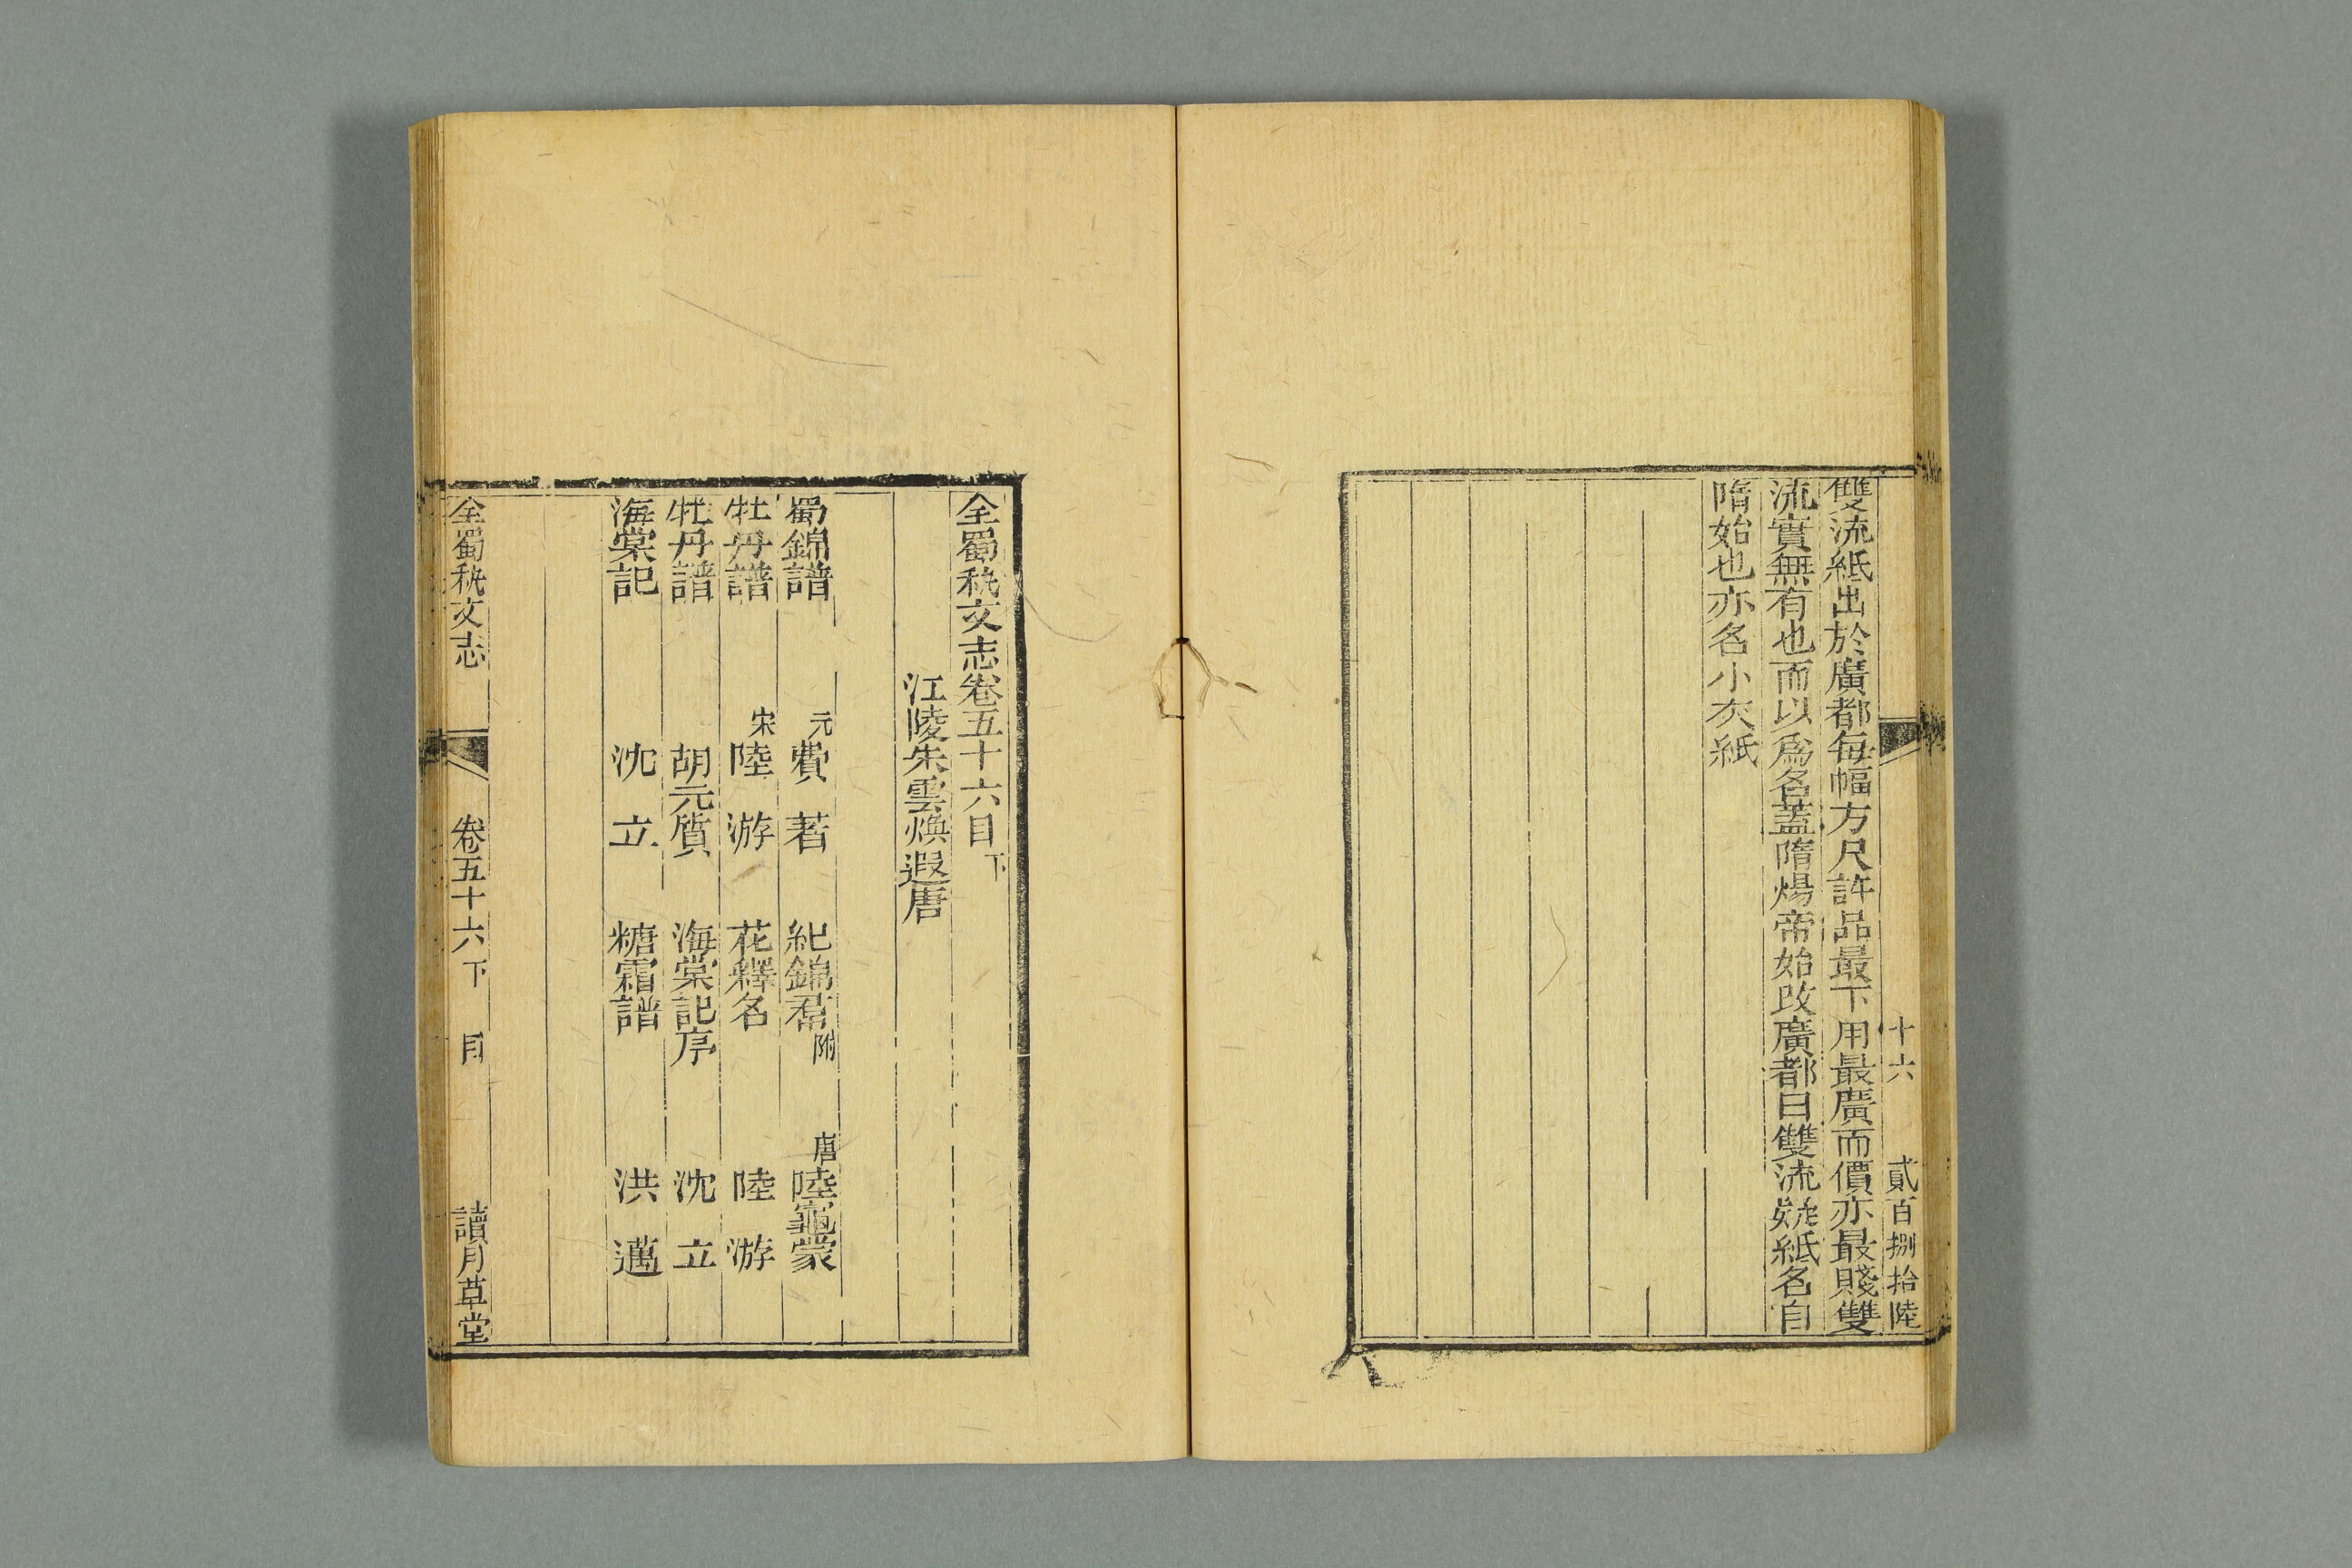 十六　貳百捌拾陸
雙流紙出於廣都每幅方尺許品最下用最廣而價亦最賤雙
流實無有也而以爲名蓋隋煬帝始改廣都曰雙流疑紙名自
隋始也亦名小灰紙
全蜀秇文志卷五十六目下
江陵朱雲煥遐唐
蜀錦譜　元費著　紀錦裙附　唐陸龜蒙
牡丹譜　宋陸游　花釋名　陸游
牡丹譜　胡元質　海棠記序　沈立
海棠記　沈立　糖霜譜　洪邁
全蜀秇文志　卷五十六下　目　讀月草堂